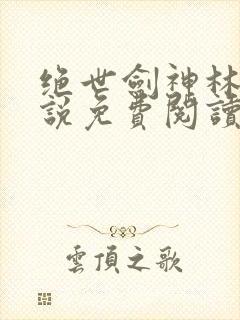 绝世劍神林
說免費閱讀
雲頂之歌